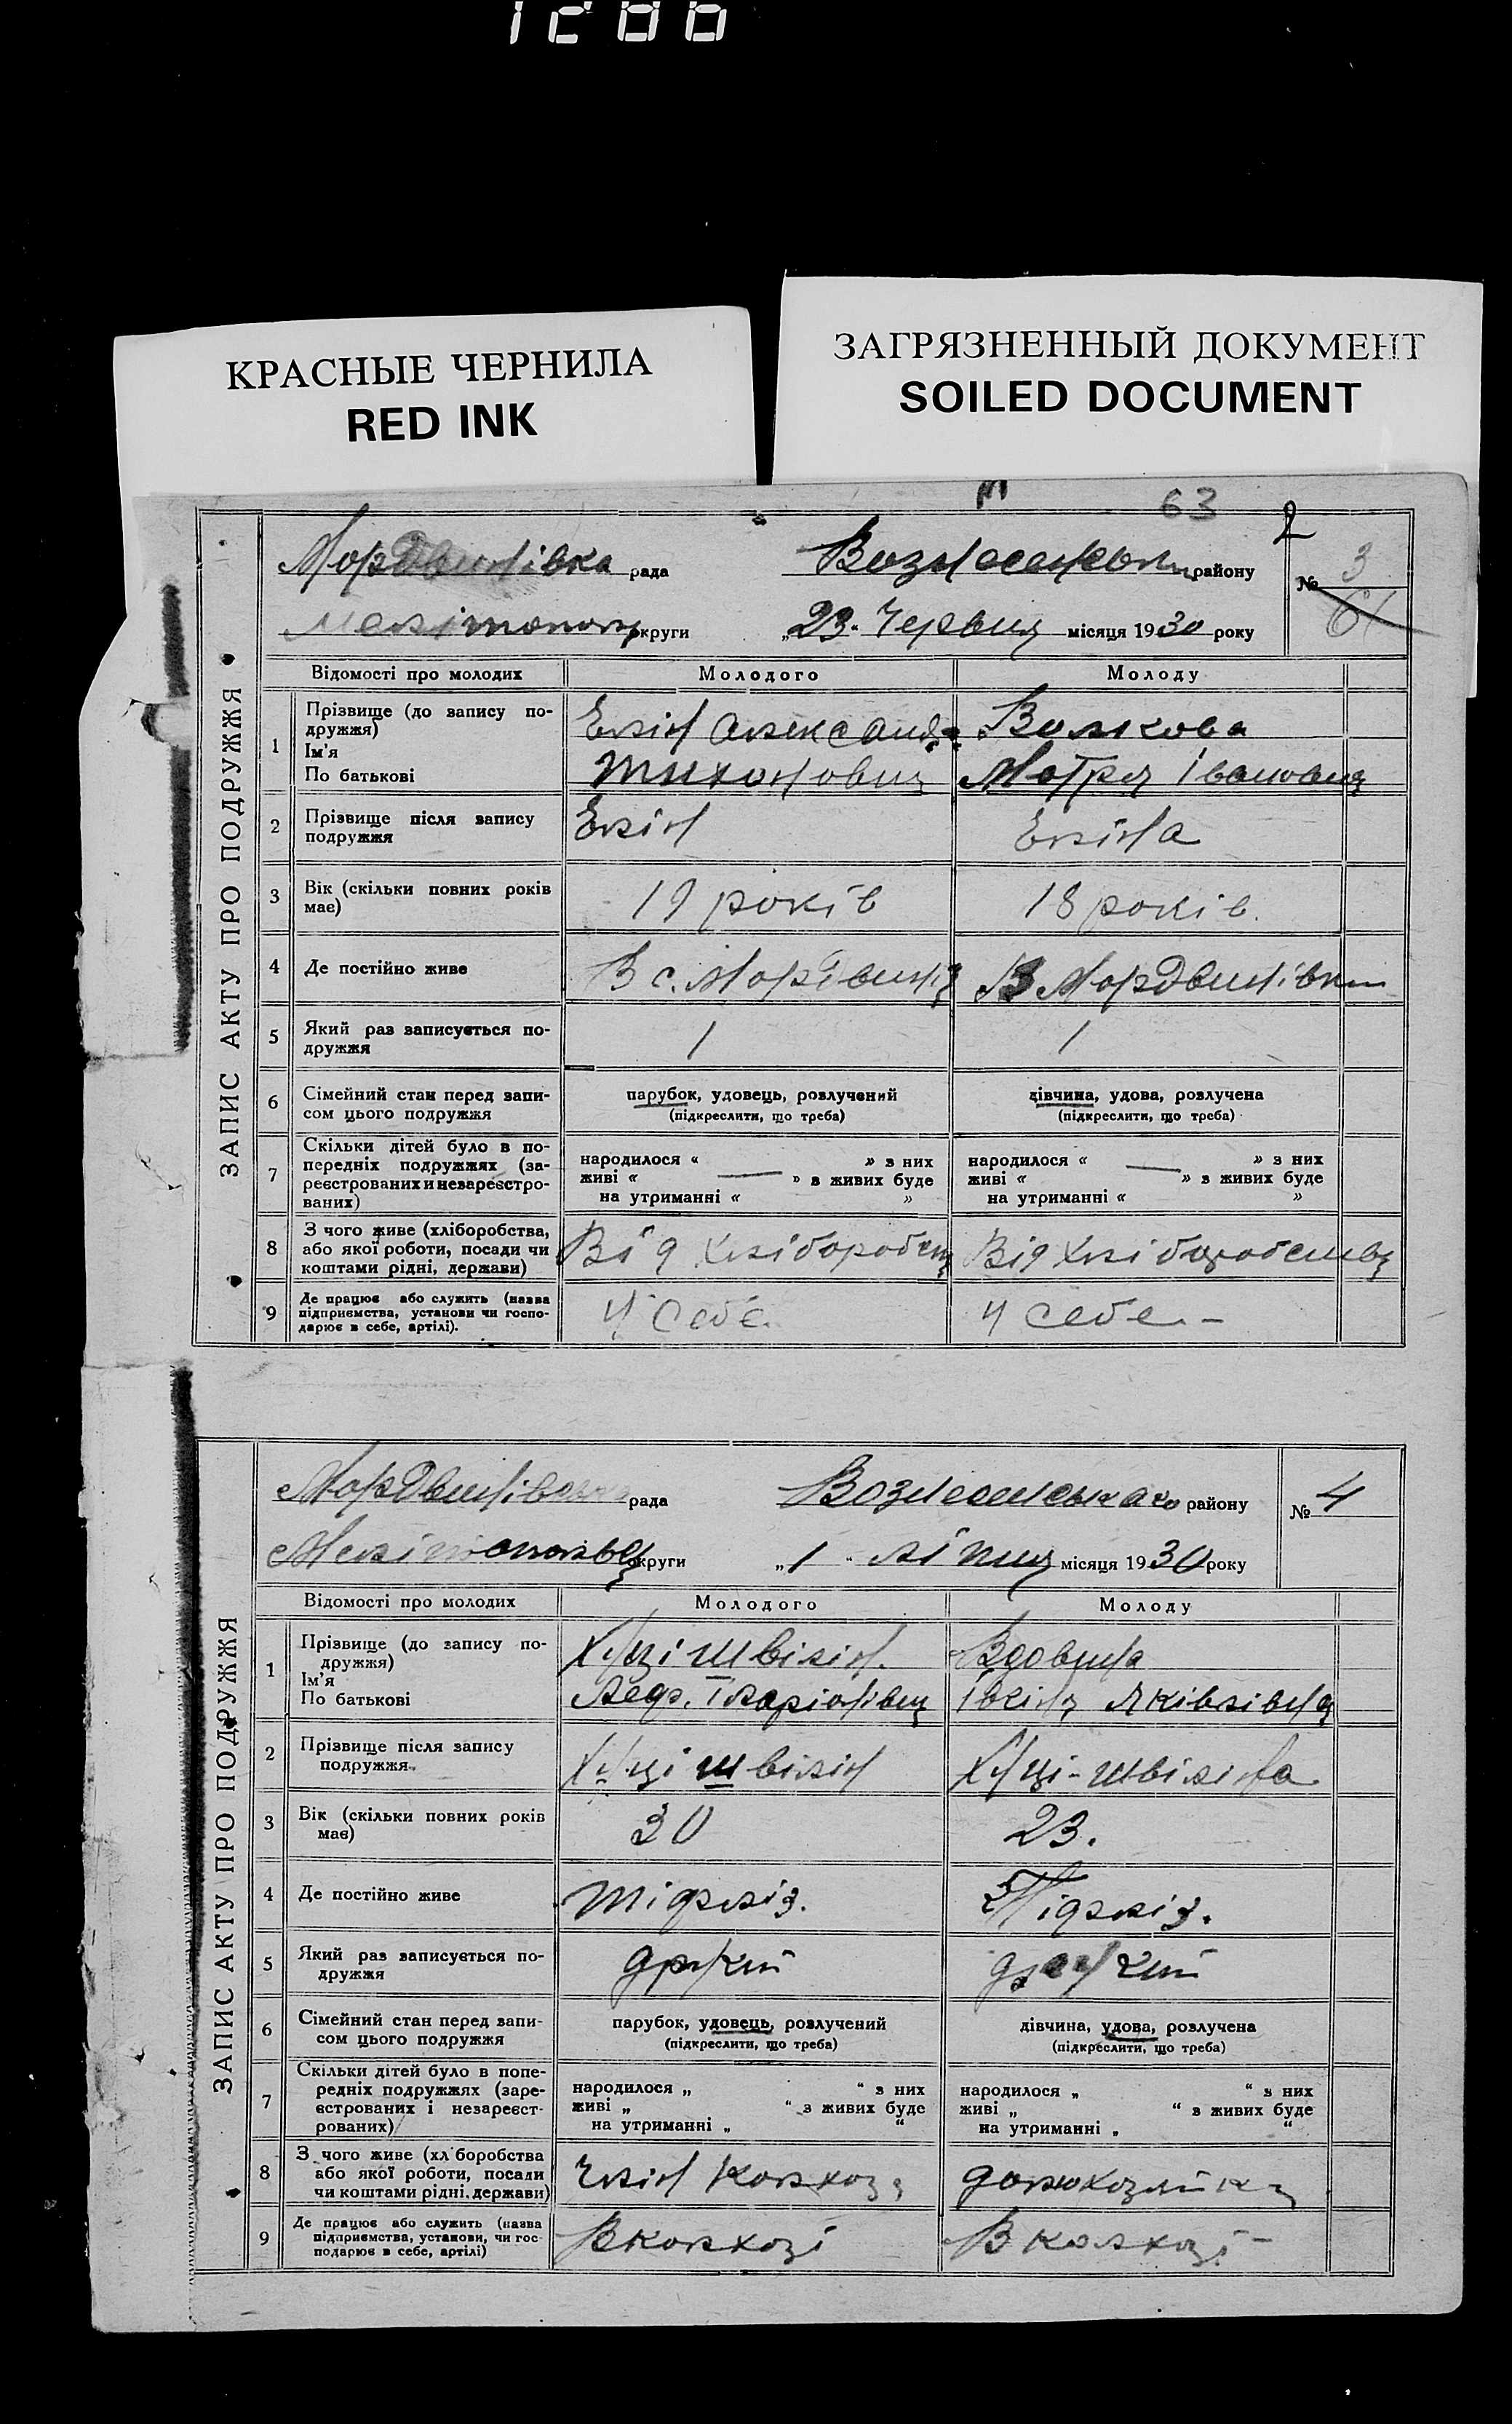 КРАСНЫЕ ЧЕРНИЛА
RED INK
ЗАГРЯЗНЕННЫЙ ДОКУМЕНТ
SOILED DOCUMENT
63
ЗАПИС АКТУ ПРО ПОДРУЖЖЯ
Мордвинівка рада району № 3
округи „23“ Червня місяця 1930 року
Відомості про молодих Молодого Молоду
1 Прізвище (до запису по-
дружжя)
Ім'я
По батькові
Елін Александр
Тихонович
Волкова
Мотря Івановна
2 Прізвище після запису
подружжя
Елін Еліна
3 Вік (скільки повних років
має)
19 років 18 років.
4 Де постійно живе
В с. В Мордвинівки
5 Який раз записується по-
дружжя
1 1
6 Сімейний стан перед запи-
сом цього подружжя
парубок, удовець, розлучений
(підкреслити, що треба)
дівчина, удова, розлучена
(підкреслити, що треба)
7 Скільки дітей було в по-
передніх подружжях (за-
реєстрованих и незареєстро-
ваних)
народилося « » з них
живі « » з живих буде
на утриманні « »
народилося « » з них
живі « » з живих буде
на утриманні « »
8 З чого живе (хліборобства,
або якої роботи, посади чи
коштами рідні, держави)
Від Від
9 Де працює або служить (назва
підприємства, установи чи госпо-
дарює в себе, артілі).
У себе. У себе. –
ЗАПИС АКТУ ПРО ПОДРУЖЖЯ
рада району № 4
округи „1“ липня місяця 1930 року
Відомості про молодих Молодого Молоду
1 Прізвище (до запису по-
дружжя)
Ім'я
По батькові
Вдовина
Яківлівна
2 Прізвище після запису
подружжя.
3 Вік (скільки повних років
має)
30 23.
4 Де постійно живе
5 Який раз записується по-
дружжя
6 Сімейний стан перед запи-
сом цього подружжя
парубок, удовець, розлучений
(підкреслити, що треба)
дівчина, удова, розлучена
(підкреслити, що треба)
7 Скільки дітей було в попе-
редніх подружжях (заре-
єстрованих і незареєст-
рованих)
народилося „ “ з них
живі „ “ з живих буде
на утриманні „ “
народилося „ “ з них
живі „ “ з живих буде
на утриманні „ “
8 З чого живе (хліборобства
або якої роботи, посади
чи коштами рідні, держави)
Член колхозу
9 Де працює або служить (назва
підприємства, установи, чи гос-
подарює в себе, артілі)
В колхозі В колхозі –